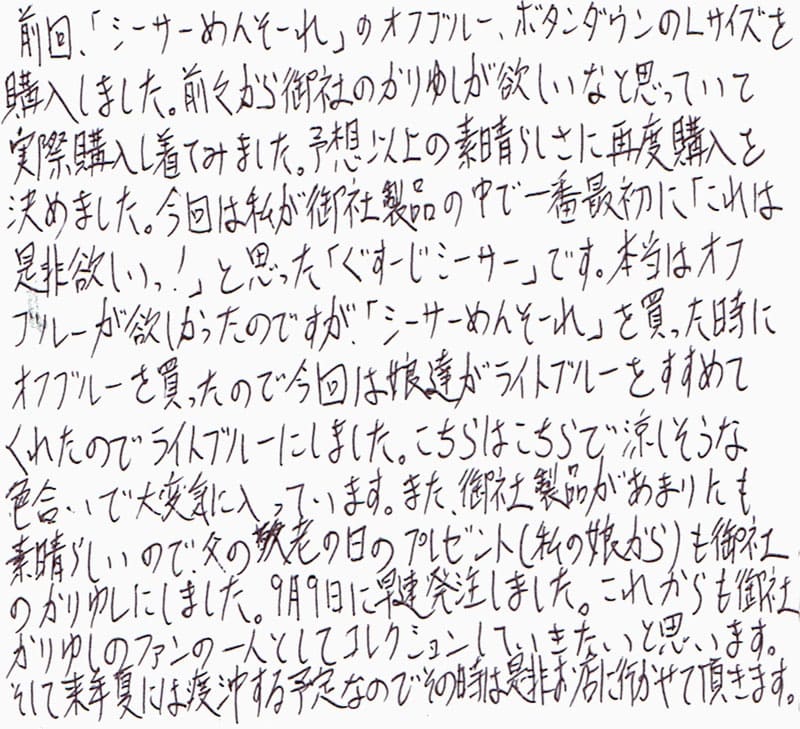 前回、「シーサーめんそーれ」のオフブルー、ボタンダウンのLサイズを
購入しました。前々から御社のかりゆしが欲しいなと思っていて
実際購入し着てみました。予想以上の素晴らしさに再度購入を
決めました。今回は私が御社製品の中で一番最初に「これは
是非欲しいっ!」と思った「ぐすーじシーサー」です。本当はオフ
ブルーが欲しかったのですが、「シーサーめんそーれ」を買った時に
オフブルーを買ったので今回は娘達がライトブルーをすすめて
くれたのでライトブルーにしました。こちらはこちらで涼しそうな
色合いで大変気に入っています。また、御社製品があまりにも
素晴らしいので、父の敬老の日のプレゼント(私の娘から)も御社
のかりゆしにしました。9月9日に早速発注しました。これからも御社
かりゆしのファンの一人としてコレクションしていきたいと思います。
そして来年夏には渡沖する予定なのでその時は是非お店に行かせて頂きます。